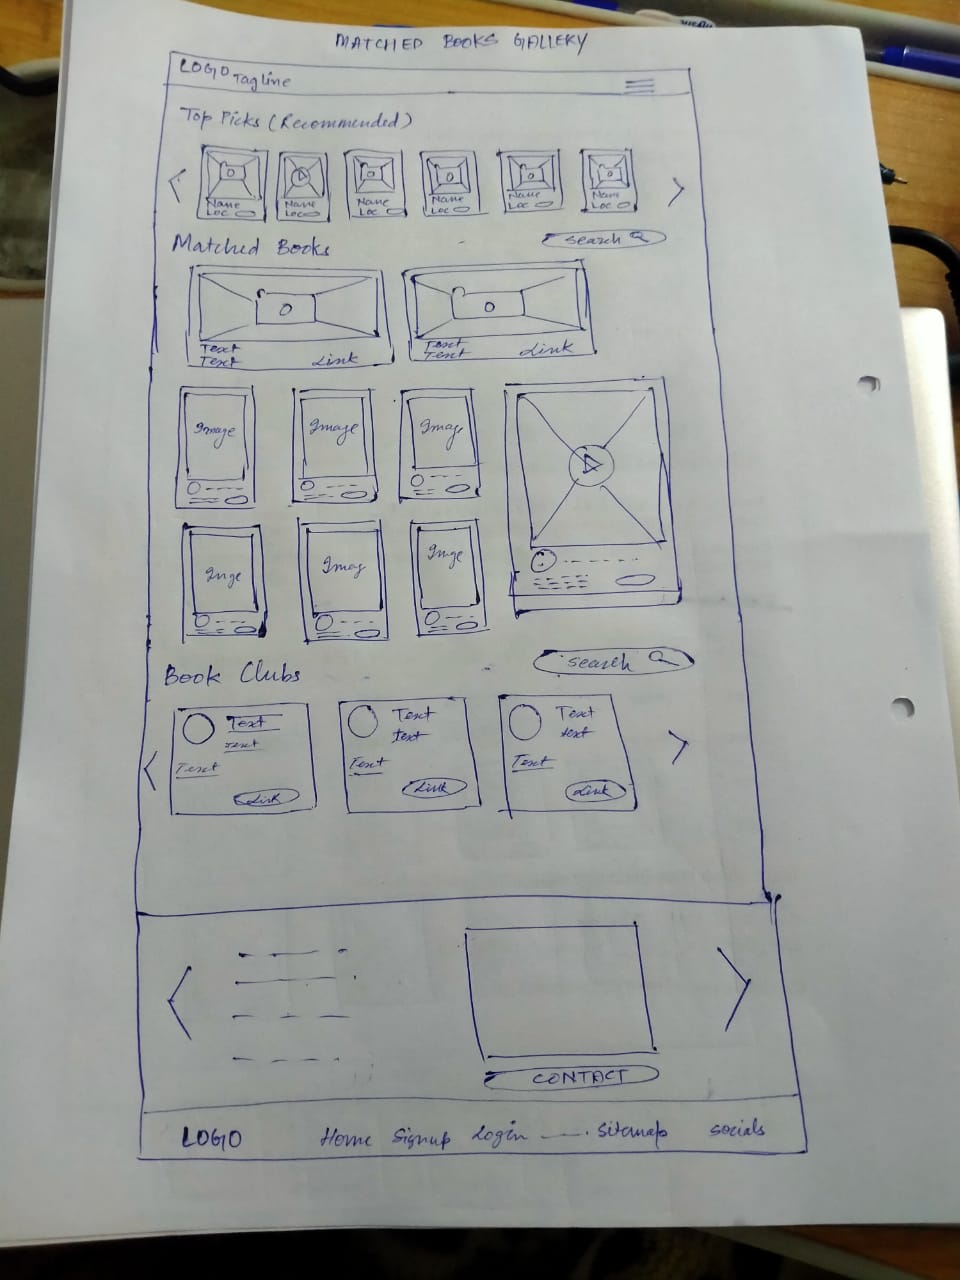 MATCHED BOOKS GALLERY
LOGO Tagline
Top Picks (Recommended)
Name Name Name Name Name Name
Loc Loc Loc Loc Loc Loc
Matched Books
search
Text Text
Text Link Text Link
Image Image Image
Inge Imag Imge
Book Clubs
search
Text Text Text
Text text text
Text Text Text
Link Link Link
CONTACT
LOGO Home Signup Login Sitemap socials